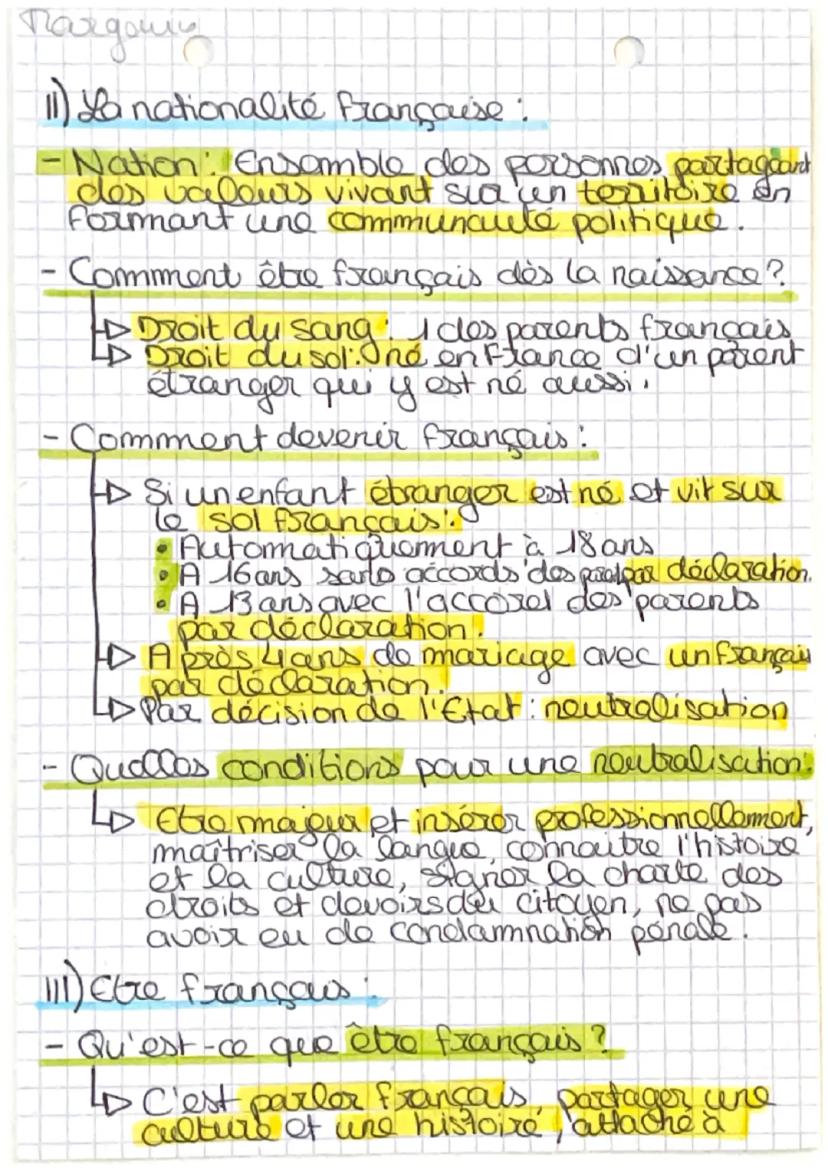 II) La nationalité française :
- Nation : Ensemble des personnes partageant
des valeurs vivant sur un territoire en
formant une communauté politique.
- Comment être français dès la naissance ?
Droit du sang : 1 des parents français
Droit du sol : né en France d'un parent
étranger qui y est né aussi.
- Comment devenir français :
Si un enfant étranger est né et vit sur
le sol français :
• Automatiquement à 18 ans
• A 16 ans sans accords des par déclaration.
• A 13 ans avec l'accord des parents
par déclaration.
Après 4 ans de mariage avec un français
par déclaration.
Par décision de l'Etat : neutralisation
- Quelles conditions pour une neutralisation :
Etre majeur et insérer professionnellement,
maîtriser la langue, connaitre l'histoire
et la culture, signer la charte des
droits et devoirs du citoyen, ne pas
avoir eu de condamnation pénale.
III) Etre français :
- Qu'est-ce que être français ?
C'est parler français, partager une
culture et une histoire, attaché à